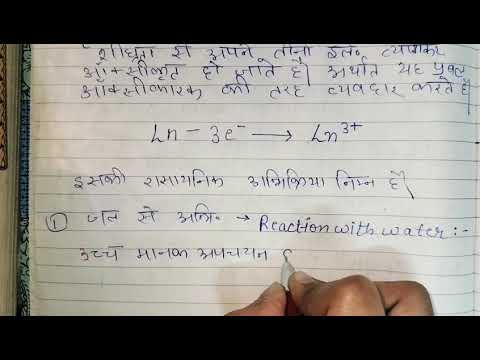 शीघ्रता से अपने तीनो इले० त्यागकर
ऑक्सीकृत हो जाते है। अर्थात यह प्रबल
ऑक्सीकारक की तरह व्यवहार करते है।
Ln - 3e⁻ ⟶ Ln³⁺
इसकी रासायनिक अभिक्रिया निम्न है।
① जल से अभि० → Reaction with water :-
उच्च मानक अपचयन